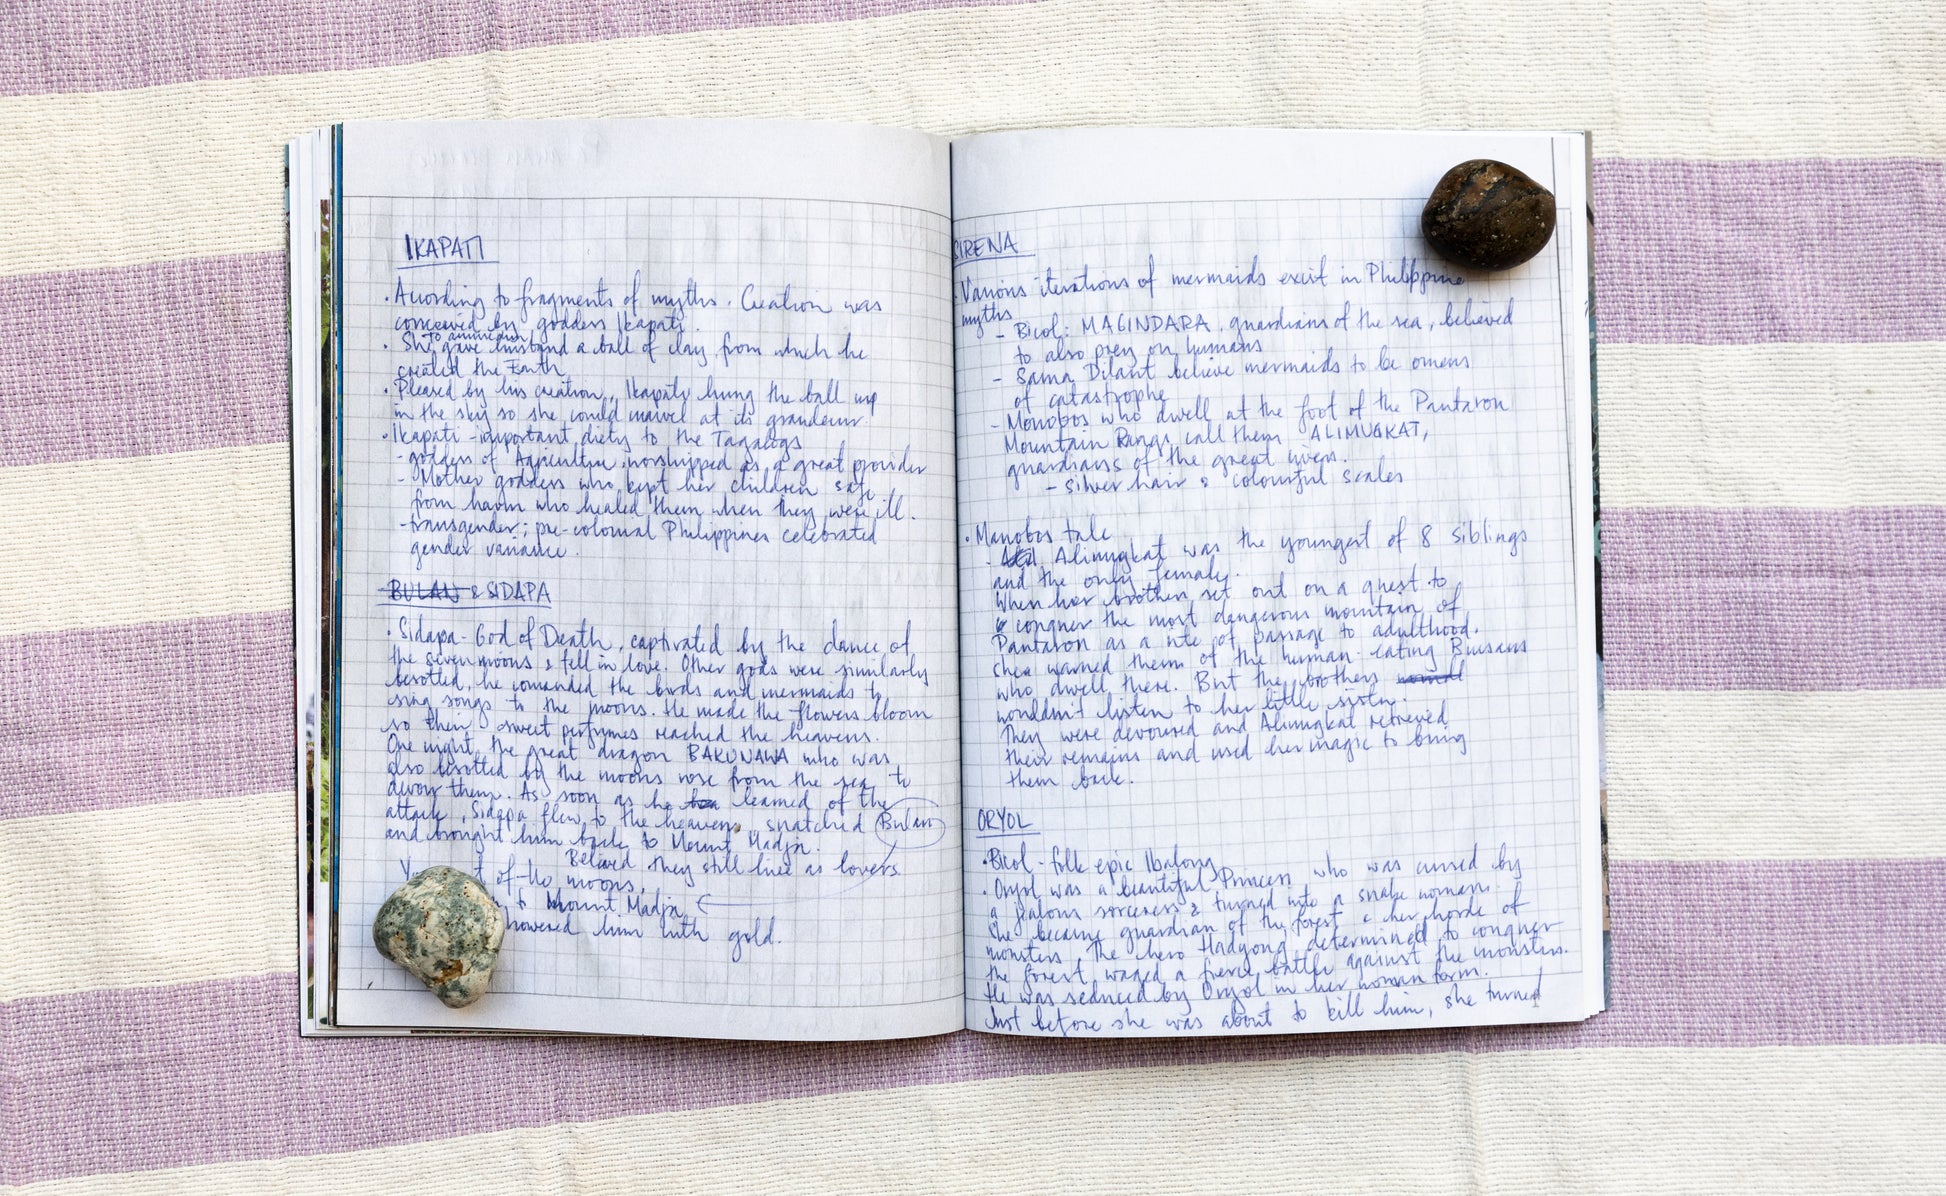 IKAPATI
• According to fragments of myths. Creation was
conceived by goddess Ikapati.
to
• She gave husband a ball of clay from which he
created the Earth
• Pleased by his creation, Ikapati hung the ball up
in the sky so she could marvel at its grandeur.
• Ikapati - important diety to the Tagalogs
- goddess of Agriculture, worshipped as a great provider
- Mother goddess who kept her children safe
from harm who healed them when they were ill.
- transgender; pre-colonial Philippines celebrated
gender variance.
BULAN & SIDAPA
• Sidapa - God of Death, captivated by the dance of
the seven moons & fell in love. Other gods were similarly
besotted, he comanded the birds and mermaids to
sing songs to the moons. He made the flowers bloom
so their sweet perfumes reached the heavens.
One night, the great dragon BAKUNAWA who was
also besotted by the moons rose from the sea to
devour them. As soon as he learned of the
attack, Sidapa flew to the heavens, snatched Bulan
and brought him back to Mount Madja.
Believed they still live as lovers.
of the moons,
to Mount Madja
howered him with gold.
SIRENA
• Various iterations of mermaids exist in Philippine
myths
- Bicol: MAGINDARA, guardians of the sea, believed
to also prey on humans
- Sama Dilaut believe mermaids to be omens
of catastrophe
- Monobos who dwell at the foot of the Pantaron
Mountain Range call them ALIMUGKAT,
guardians of the great rivers.
- silver hair & colourful scales
• Manobos tale
- Alimugkat was the youngest of 8 siblings
and the only female.
When her brothers set out on a quest to
conquer the most dangerous mountain of
Pantaron as a rite of passage to adulthood.
she warned them of the human-eating Busaws
who dwell there. But the brothers
wouldn't listen to her little sister.
They were devoured and Alimugkat retrieved
their remains and used her magic to bring
them back.
ORYOL
• Bicol - folk epic Ibalong
• Oryol was a beautiful Princess who was cursed by
a jealous sorceress & turned into a snake woman.
She became guardian of the forest & her horde of
monsters. The hero Hadyong determined to conquer
the forest, waged a fierce battle against the monsters.
He was seduced by Oryol in her human form.
Just before she was about to kill him, she turned